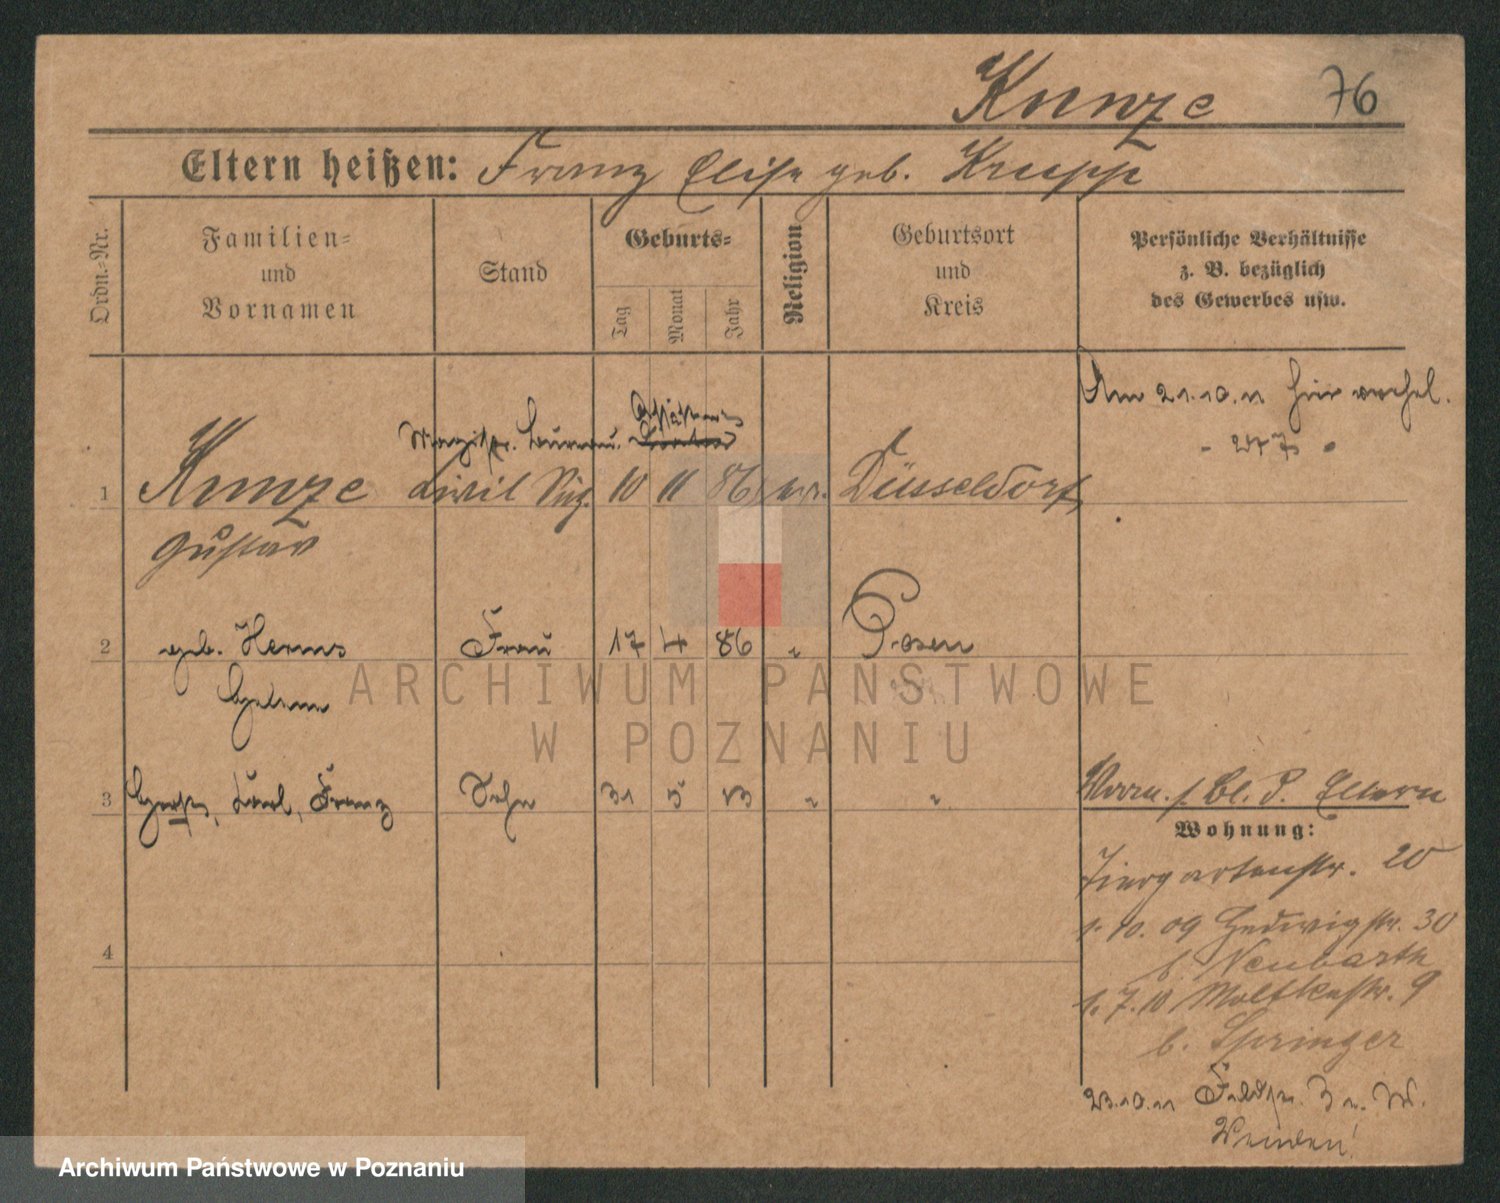 Kunze 76
Eltern heißen: Franz Elise geb. Krupp
Ordn.-Nr.
Familien-
und
Vornamen
Stand
Geburts-
Tag
Monat
Jahr
Religion
Geburtsort
und
Kreis
Persönliche Verhältnisse
z. B. bezüglich
des Gewerbes usw.
Am 21.10.11 hier verehel.
Magistr. Bureau
1 Kunze Civil 10 11 86 ev. Düsseldorf
Gustav
2 geb. Herms Frau 17 4 86 " Posen
Helene
3 Horst, Karl, Franz Sohn 31 5 13 " "
Eltern
Wohnung:
Tiergartenstr. 20
1. 10. 09 Hedwigstr. 30
b. Neubarth
1. 7. 10 Moltkestr. 9
b. Springer
4
23.10.11 Feldstr.
ARCHIWUM PAŃSTWOWE
W POZNANIU
Archiwum Państwowe w Poznaniu